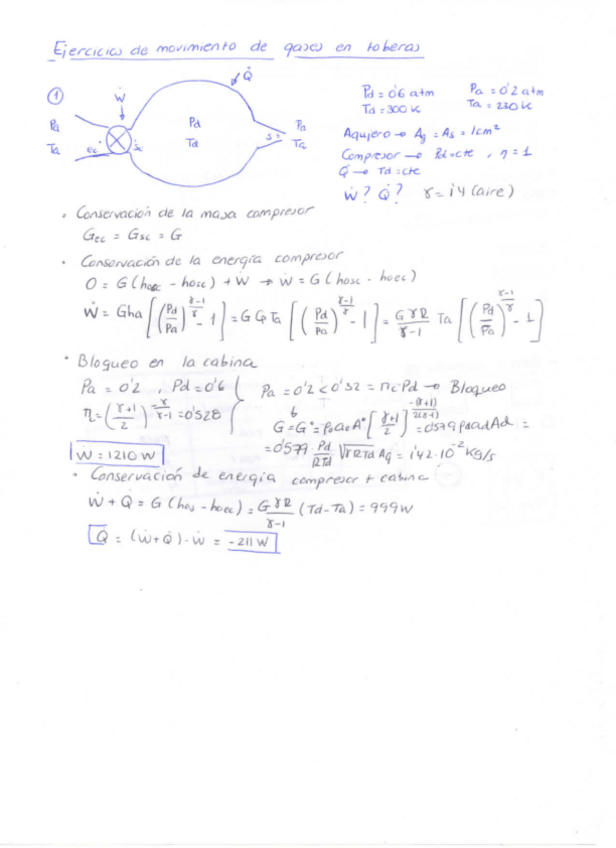 Ejercicios de movimiento de gases en toberas
① Ẇ Q̇
Pa Ta ec sc Pd Td s Pa Ta
Pd = 0'6 atm Pa = 0'2 atm
Td = 300 K Ta = 230 K
Agujero → Ag = As = 1cm²
Compresor → Pd = cte , η = 1
Q̇ → Td = cte
Ẇ? Q̇? γ = 1'4 (aire)
• Conservación de la masa compresor
Gec = Gsc = G
• Conservación de la energía compresor
0 = G(hoec - hosc) + Ẇ → Ẇ = G(hosc - hoec)
Ẇ = Gha [(Pd/Pa)^(γ-1/γ) - 1] = G Cp Ta [(Pd/Pa)^(γ-1/γ) - 1] = GγR/γ-1 Ta [(Pd/Pa)^(γ-1/γ) - 1]
• Bloqueo en la cabina
Pa = 0'2 , Pd = 0'6
η = (γ+1/2)^(-γ/γ-1) = 0'528
Pa = 0'2 < 0'32 = ηc Pd → Bloqueo
G = G* = ρoaoA* [γ+1/2]^(-(γ+1)/2(γ-1)) = 0'579 ρdadAd =
= 0'579 · Pd/RTd √γRTd Ag = 1'42·10⁻² Kg/s
Ẇ = 1210 W
• Conservación de energía compresor + cabina
Ẇ + Q̇ = G(hos - hoec) = GγR/γ-1 (Td - Ta) = 999W
Q̇ = (Ẇ+Q̇) - Ẇ = -211 W